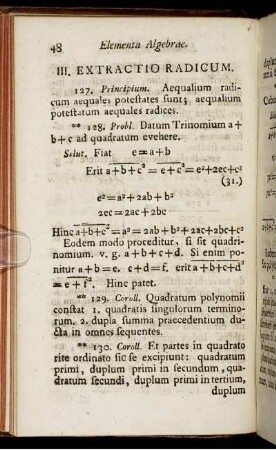 48 Elementa Algebrae.
III. EXTRACTIO RADICUM.
127. Principium. Aequalium radi-
cum aequales potestates sunt; aequalium
potestatum aequales radices.
** 128. Probl. Datum Trinomium a+
b+c ad quadratum evehere.
Solut. Fiat e=a+b
Erit a+b+c² = e+c² = e²+2ec+c²
(31.)
e²=a²+2ab+b²
2ec=2ac+2bc
Hinc a+b+c² = a²=2ab+b²+2ac+2bc+c²
Eodem modo proceditur, si sit quadri-
nomium. v. g. a+b+c+d. Si enim po-
nitur a+b=e. c+d=f. erit a+b+c+d²
= e+f². Hinc patet.
** 129. Coroll. Quadratum polynomii
constat 1. quadratis singulorum termino-
rum. 2. dupla summa praecedentium du-
cta in omnes sequentes.
** 130. Coroll. Et partes in quadrato
rite ordinato sic se excipiunt: quadratum
primi, duplum primi in secundum, qua-
dratum secundi, duplum primi in tertium,
duplum